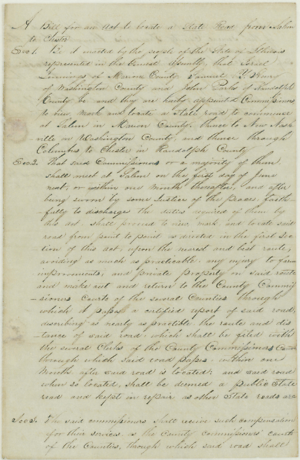 A Bill for an Act to locate a State Road from Salem
to Chester
Sec 1 Be it enacted by the people of the State of Illinois
represented in the General Assembly, that Israel
Jennings of Marion County Samuel
of Washington County and John of Randolph
County be and they are hereby appointed Commissioners
to view mark and locate a State road to commence
at Salem in Marion County, thence to New Nash
ville in Washington County, and thence through
Columbus to Chester in Randolph County
Sec 2 That said Commissioners or a majority of them
shall meet at Salem on the first day of June
next, or within one month thereafter, and after
being sworn by some Justice of the peace faith-
fully to discharge the duties required of them by
this act shall proceed to view mark and locate said
road from point to point as directed in the first Sec
tion of this act, upon the nearest and best route,
avoiding as much as practicable any injury to farms
improvements and private property on said route
and make out and return to the County Commis
sioners Courts of the several Counties through
which it passes a certified report of said road,
describing as nearly as practicable the route and dis
tance of said road which shall be filed with
the several Clerks of the County Commissioners Courts
through which said road passes within one
Month after said road is located; and said road
when so located, shall be deemed a public State
road and kept in repair as other State roads are
Sec 3. The said commissioners shall receive such compensation
for their services as the county commissioners courts
of the Counties, through which said road shall